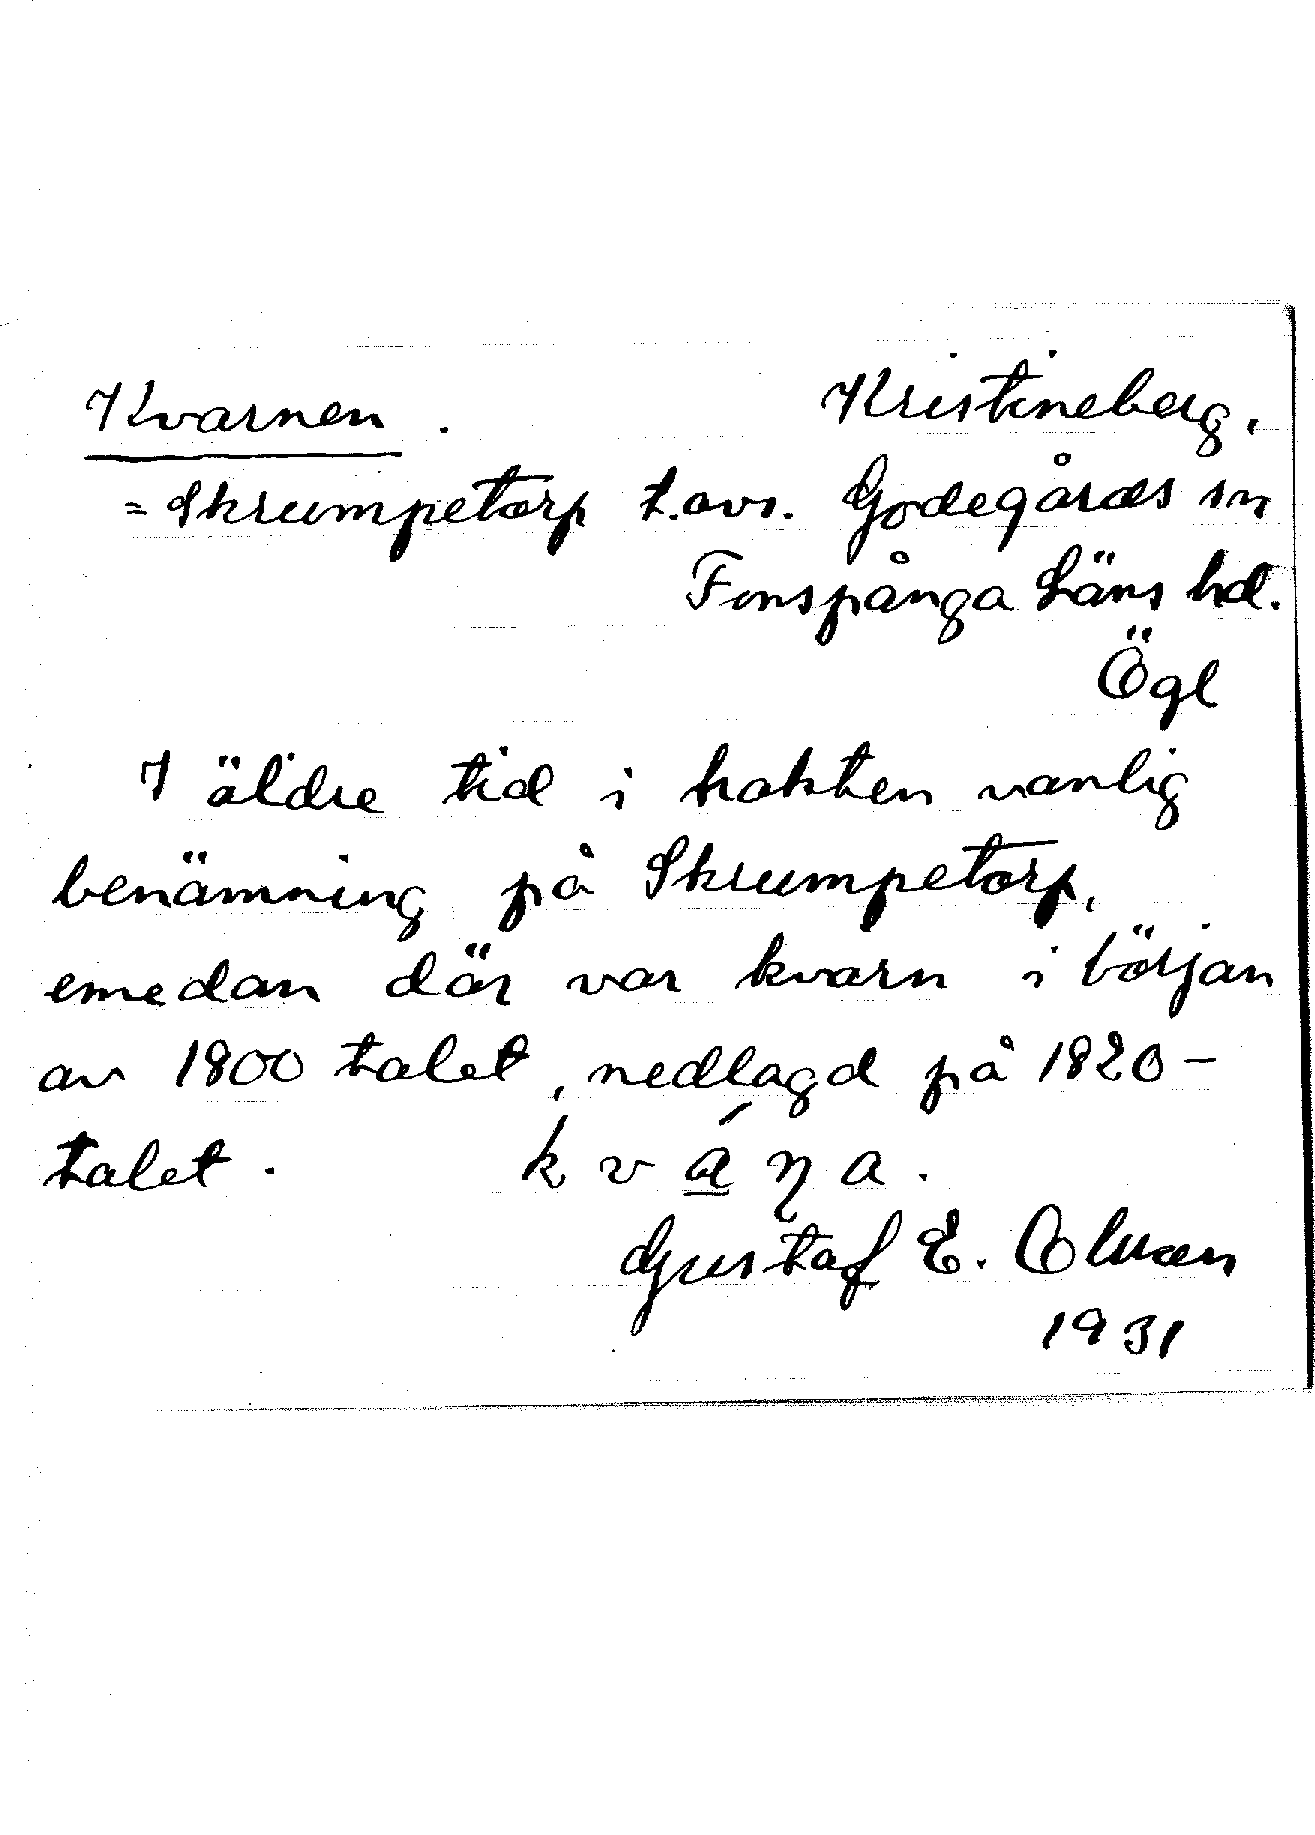 Kvarnen. Kristineberg.
= Skrumpetorp t.avs. Godegårds sn
Finspånga Läns hd.
Ögl
I äldre tid i trakten vanlig
benämning på Skrumpetorp,
emedan där var kvarn i början
av 1800 talet, nedlagd på 1820-
talet. kvána.
Gustaf E.
1931